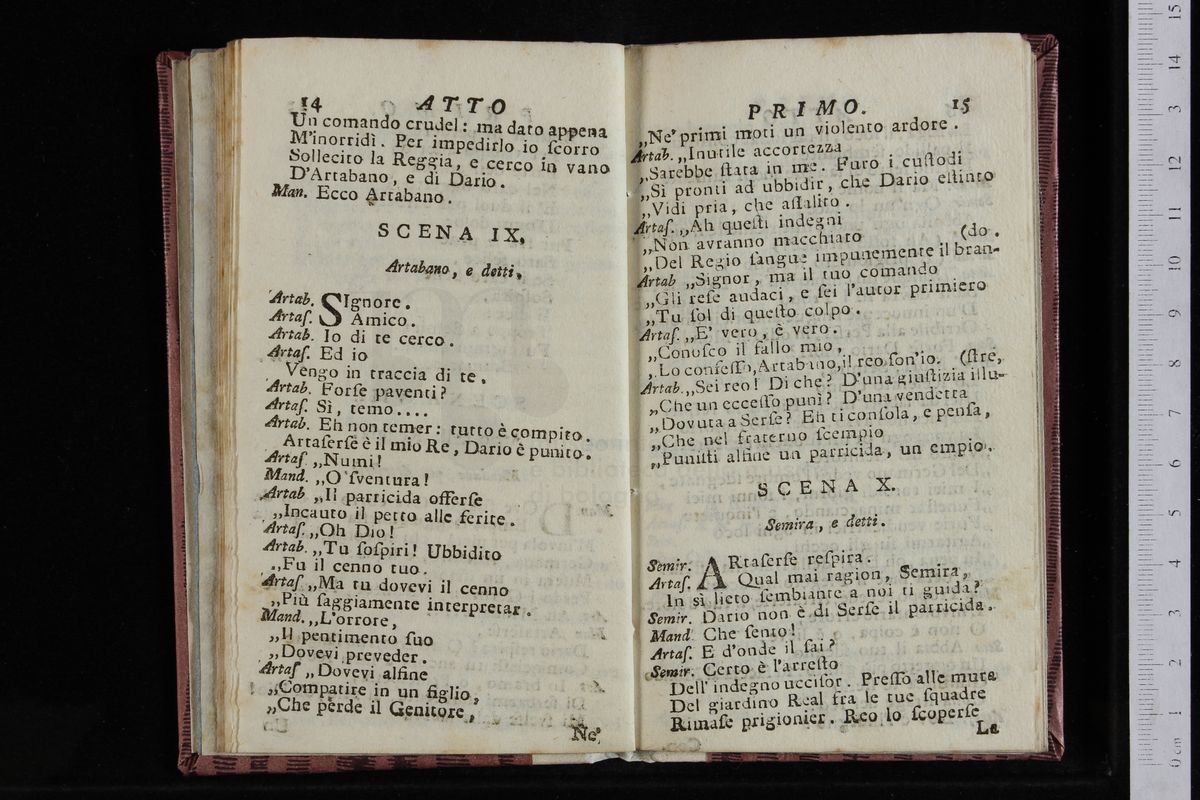 14 ATTO
Un comando crudel: ma dato appena
M'inorridì. Per impedirlo io ſcorro
Sollecito la Reggia, e cerco in vano
D'Artabano, e di Dario.
Man. Ecco Artabano.
SCENA IX.
Artabano, e detti.
Artab. SIgnore.
Artaſ. Amico.
Artab. Io di te cerco.
Artaſ. Ed io
Vengo in traccia di te.
Artab. Forſe paventi?
Artaſ. Sì, temo....
Artab. Eh non temer: tutto è compito.
Artaſerſe è il mio Re, Dario è punito.
Artaſ. „Numi!
Mand. „O ſventura!
Artab „Il parricida offerſe
„Incauto il petto alle ferite.
Artaſ. „Oh Dio!
Artab. „Tu ſoſpiri! Ubbidito
„Fu il cenno tuo.
Artaſ „Ma tu dovevi il cenno
„Più ſaggiamente interpretar.
Mand. „L'orrore,
„Il pentimento ſuo
„Dovevi preveder.
Artaſ „Dovevi alfine
„Compatire in un figlio,
„Che perde il Genitore,
Ne'
PRIMO. 15
„Ne' primi moti un violento ardore.
Artab. „Inutile accortezza
„Sarebbe ſtata in me. Furo i cuſtodi
„Sì pronti ad ubbidir, che Dario eſtinto
„Vidi pria, che aſſalito.
Artaſ. „Ah queſti indegni
„Non avranno macchiato (do.
„Del Regio ſangue impunemente il bran-
Artab „Signor, ma il tuo comando
„Gli reſe audaci, e ſei l'autor primiero
„Tu ſol di queſto colpo.
Artaſ. „E' vero, è vero.
„Conoſco il fallo mio,
„Lo confeſſo, Artabano, il reo ſon'io. (ſtre,
Artab. „Sei reo! Di che? D'una giuſtizia illu-
„Che un ecceſſo punì? D'una vendetta
„Dovuta a Serſe? Eh ti conſola, e penſa,
„Che nel fraterno ſcempio
„Puniſti alfine un parricida, un empio.
SCENA X.
Semira, e detti.
Semir. ARtaſerſe reſpira.
Artaſ. Qual mai ragion, Semira,
In sì lieto ſembiante a noi ti guida?
Semir. Dario non è di Serſe il parricida.
Mand Che ſento!
Artaſ. E d'onde il ſai?
Semir. Certo è l'arreſto
Dell' indegno ucciſor. Preſſo alle mura
Del giardino Real fra le tue ſquadre
Rimaſe prigionier. Reo lo ſcoperſe
La